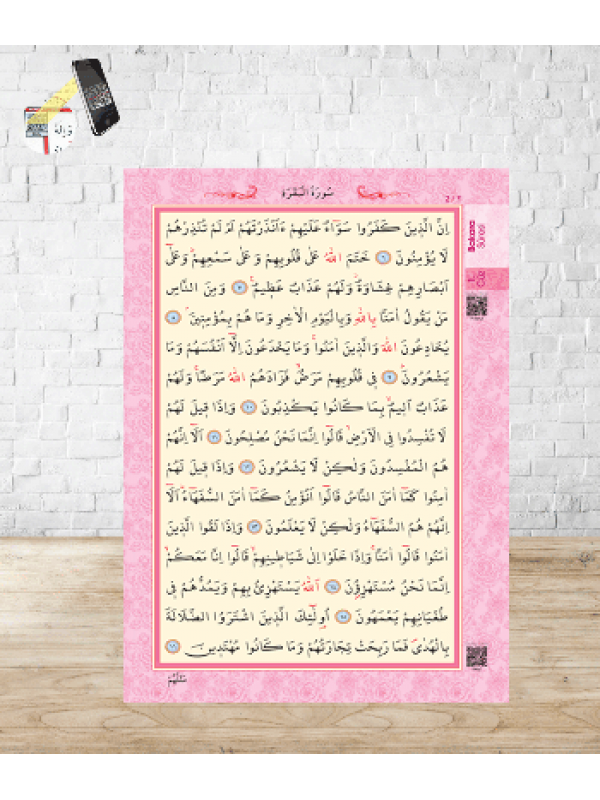 سُورَةُ الْبَقَرَةِ
Bakara
Sûresi
1.
Cüz
اِنَّ الَّذِينَ كَفَرُوا سَوَٓاءٌ عَلَيْهِمْ ءَاَنْذَرْتَهُمْ اَمْ لَمْ تُنْذِرْهُمْ
لَا يُؤْمِنُونَ ﴿٦﴾ خَتَمَ اللّٰهُ عَلٰى قُلُوبِهِمْ وَعَلٰى سَمْعِهِمْۜ وَعَلٰٓى
اَبْصَارِهِمْ غِشَاوَةٌۘ وَلَهُمْ عَذَابٌ عَظِيمٌ۟ ﴿٧﴾ وَمِنَ النَّاسِ
مَنْ يَقُولُ اٰمَنَّا بِاللّٰهِ وَبِالْيَوْمِ الْاٰخِرِ وَمَا هُمْ بِمُؤْمِنِينَۢ ﴿٨﴾
يُخَادِعُونَ اللّٰهَ وَالَّذِينَ اٰمَنُواۚ وَمَا يَخْدَعُونَ اِلَّٓا اَنْفُسَهُمْ وَمَا
يَشْعُرُونَۜ ﴿٩﴾ فِي قُلُوبِهِمْ مَرَضٌۙ فَزَادَهُمُ اللّٰهُ مَرَضًاۚ وَلَهُمْ
عَذَابٌ اَلِيمٌۙ بِمَا كَانُوا يَكْذِبُونَ ﴿١٠﴾ وَاِذَا قِيلَ لَهُمْ
لَا تُفْسِدُوا فِي الْاَرْضِۙ قَالُٓوا اِنَّمَا نَحْنُ مُصْلِحُونَ ﴿١١﴾ اَلَٓا اِنَّهُمْ
هُمُ الْمُفْسِدُونَ وَلٰكِنْ لَا يَشْعُرُونَ ﴿١٢﴾ وَاِذَا قِيلَ لَهُمْ
اٰمِنُوا كَمَٓا اٰمَنَ النَّاسُ قَالُٓوا اَنُؤْمِنُ كَمَٓا اٰمَنَ السُّفَهَٓاءُۜ اَلَٓا
اِنَّهُمْ هُمُ السُّفَهَٓاءُ وَلٰكِنْ لَا يَعْلَمُونَ ﴿١٣﴾ وَاِذَا لَقُوا الَّذِينَ
اٰمَنُوا قَالُٓوا اٰمَنَّاۚ وَاِذَا خَلَوْا اِلٰى شَيَاطِينِهِمْۙ قَالُٓوا اِنَّا مَعَكُمْۙ
اِنَّمَا نَحْنُ مُسْتَهْزِؤُ۫نَ ﴿١٤﴾ اَللّٰهُ يَسْتَهْزِئُ بِهِمْ وَيَمُدُّهُمْ فِي
طُغْيَانِهِمْ يَعْمَهُونَ ﴿١٥﴾ اُو۬لٰٓئِكَ الَّذِينَ اشْتَرَوُا الضَّلَالَةَ
بِالْهُدٰىۖ فَمَا رَبِحَتْ تِجَارَتُهُمْ وَمَا كَانُوا مُهْتَدِينَ ﴿١٦﴾
مَثَلُهُمْ